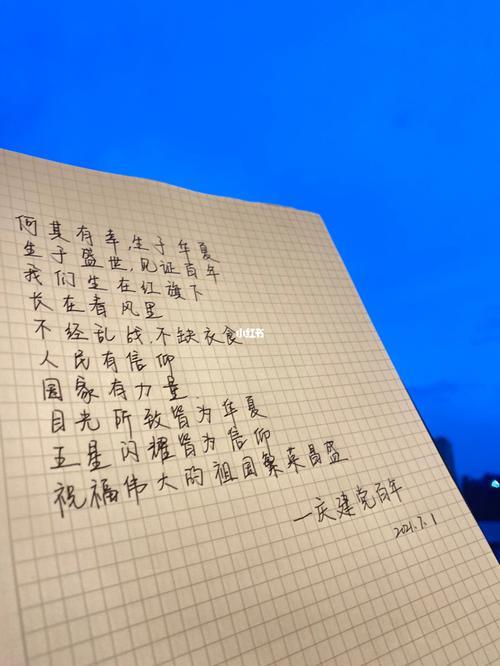 何其有幸,生于华夏
生于盛世,见证百年
我们生在红旗下
长在春风里
不经乱战,不缺衣食
小红书
人民有信仰
国家有力量
目光所致皆为华夏
五星闪耀皆为信仰
祝福伟大的祖国繁英昌盛
—庆建党百年
2021.7.1